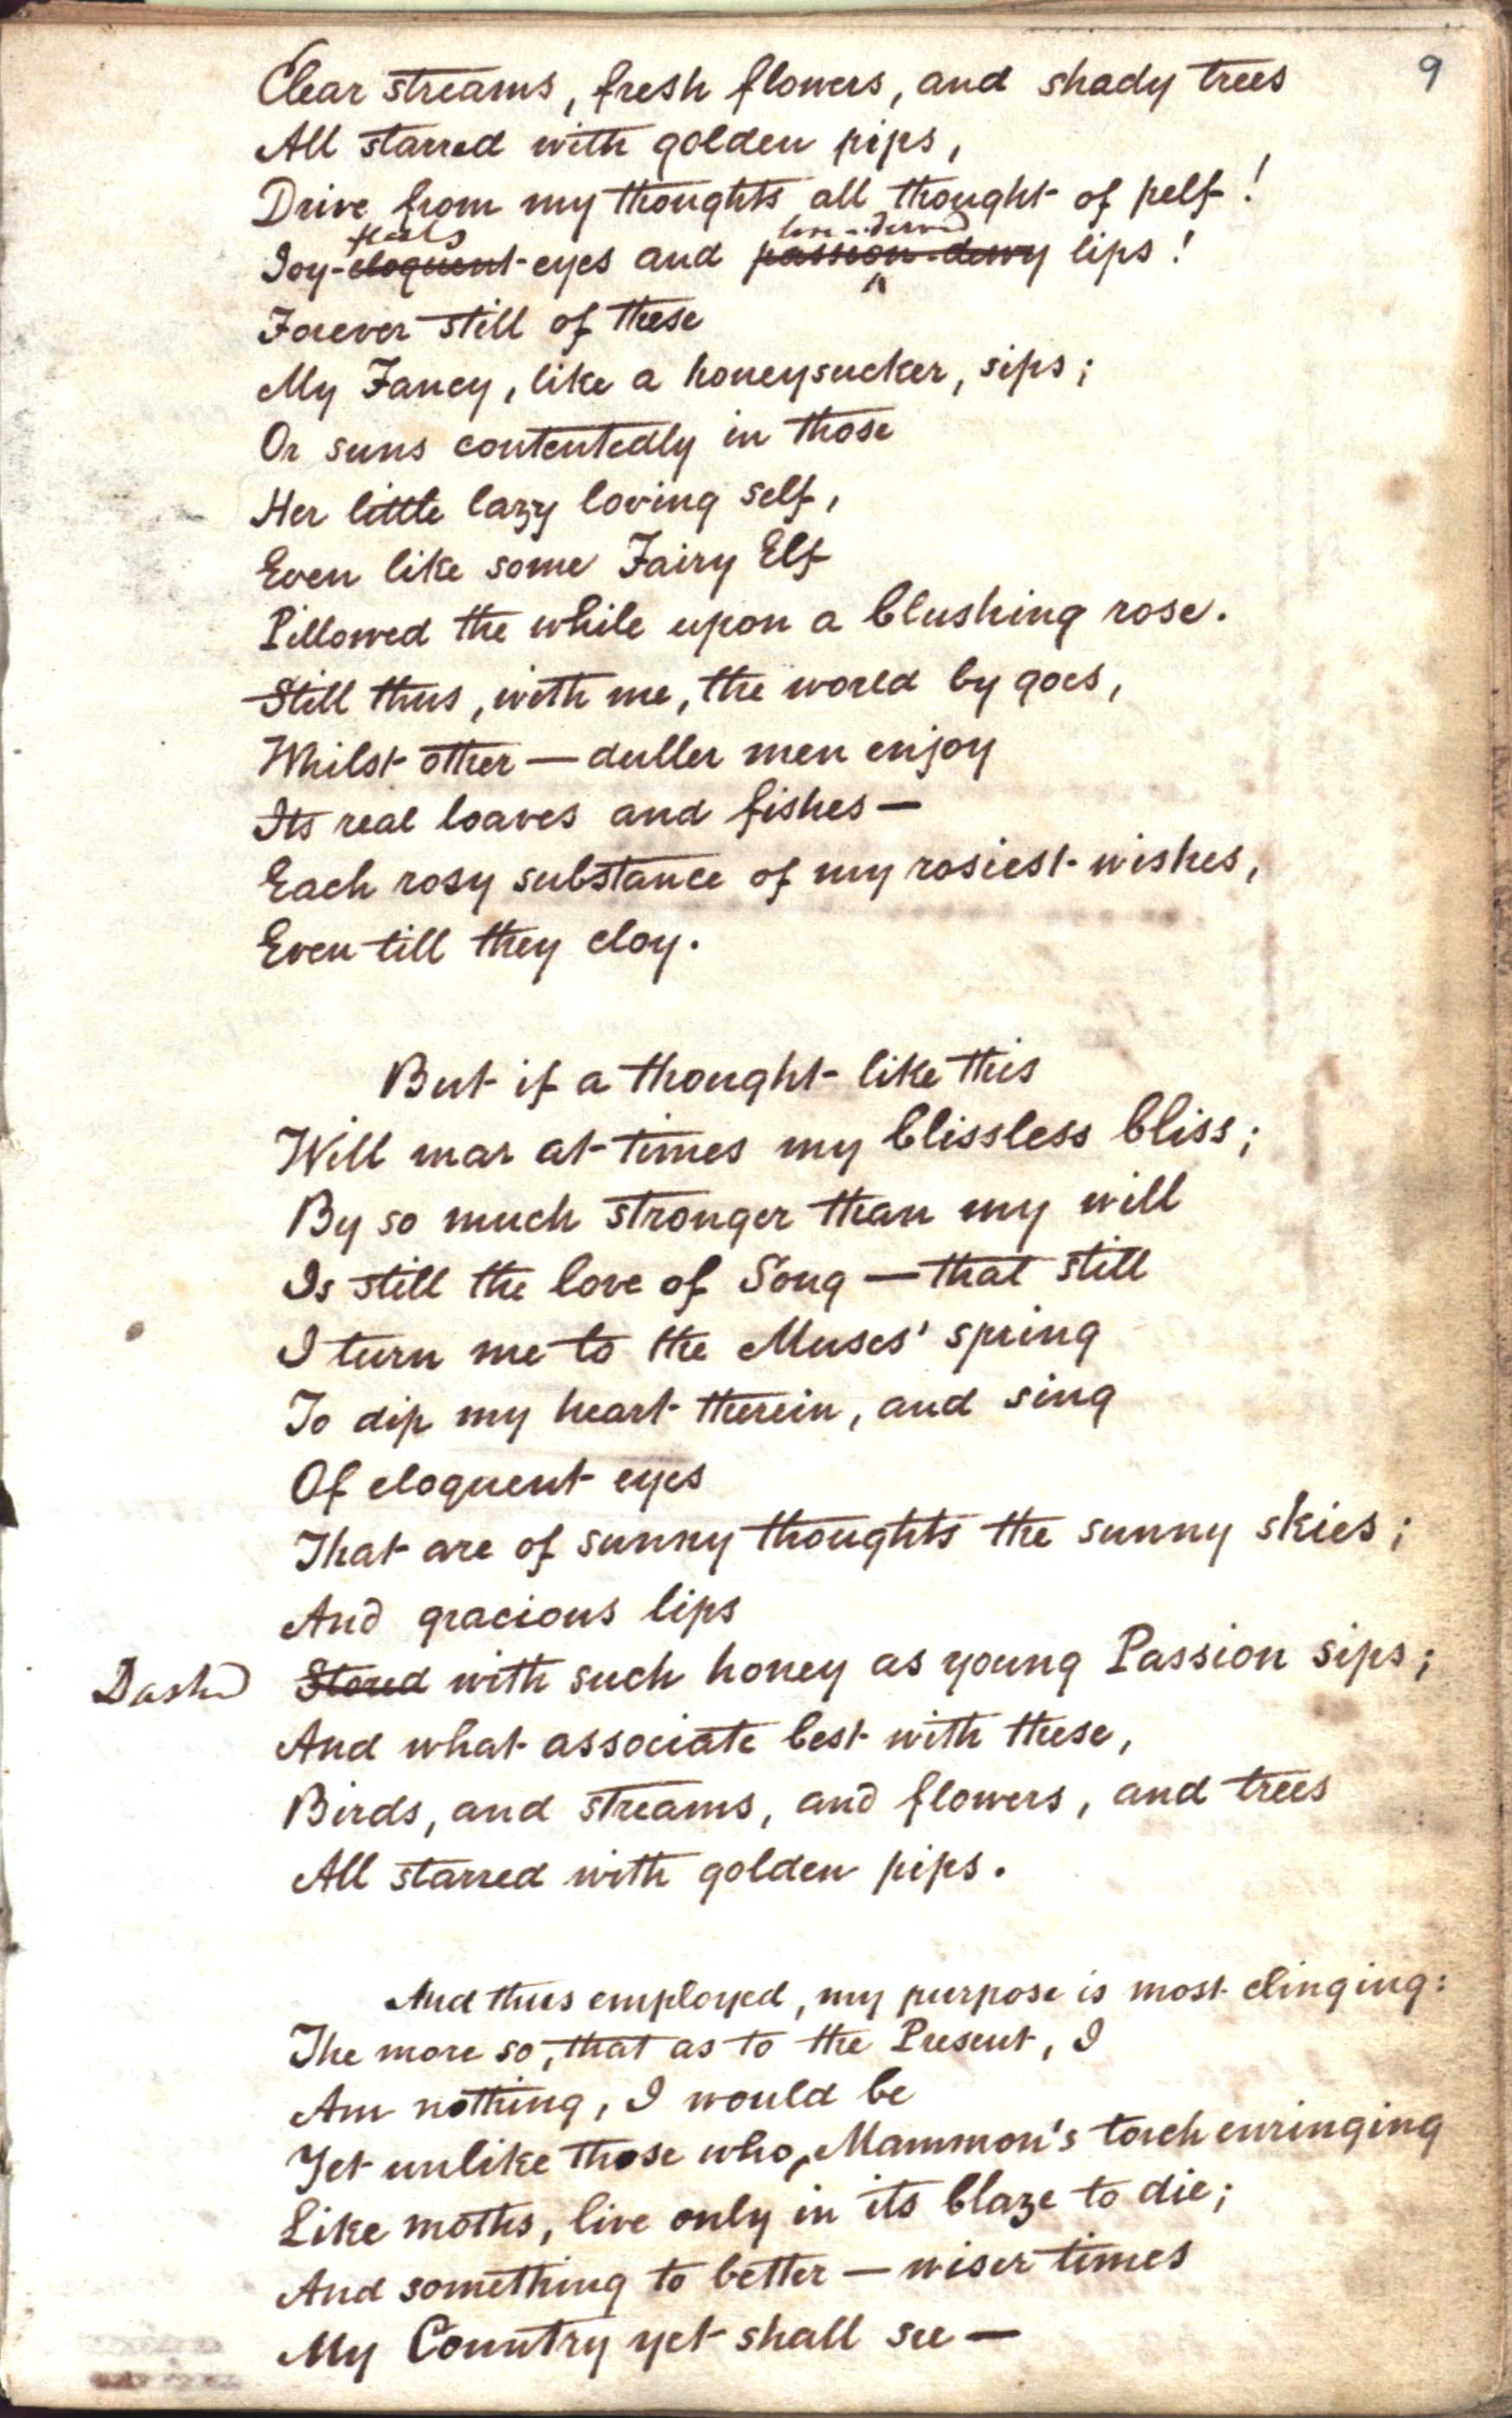 9
Clear streams, fresh flowers, and shady trees
All starred with golden pips,
Drive from my thoughts all thought of pelf!
Joy-eloquent eyes and passion-dewy lips!
Forever still of these
My Fancy, like a honeysucker, sips;
Or suns contentedly in those
Her little lazy loving self,
Even like some Fairy Elf
Pillowed the while upon a blushing rose.
Still thus, with me, the world by goes,
Whilst other — duller men enjoy
Its real loaves and fishes —
Each rosy substance of my rosiest wishes,
Even till they cloy.
But if a thought like this
Will mar at times my blissless bliss;
By so much stronger than my will
Is still the love of Song — that still
I turn me to the Muses' spring
To dip my heart therein, and sing
Of eloquent eyes
That are of sunny thoughts the sunny skies;
And gracious lips
Dashed Stored with such honey as young Passion sips;
And what associate best with these,
Birds, and streams, and flowers, and trees
All starred with golden pips.
And thus employed, my purpose is most clinging:
The more so, that as to the Present, I
Am nothing, I would be
Yet unlike those who, Mammon's torch enringing
Like moths, live only in its blaze to die;
And something to better — wiser times
My Country yet shall see —